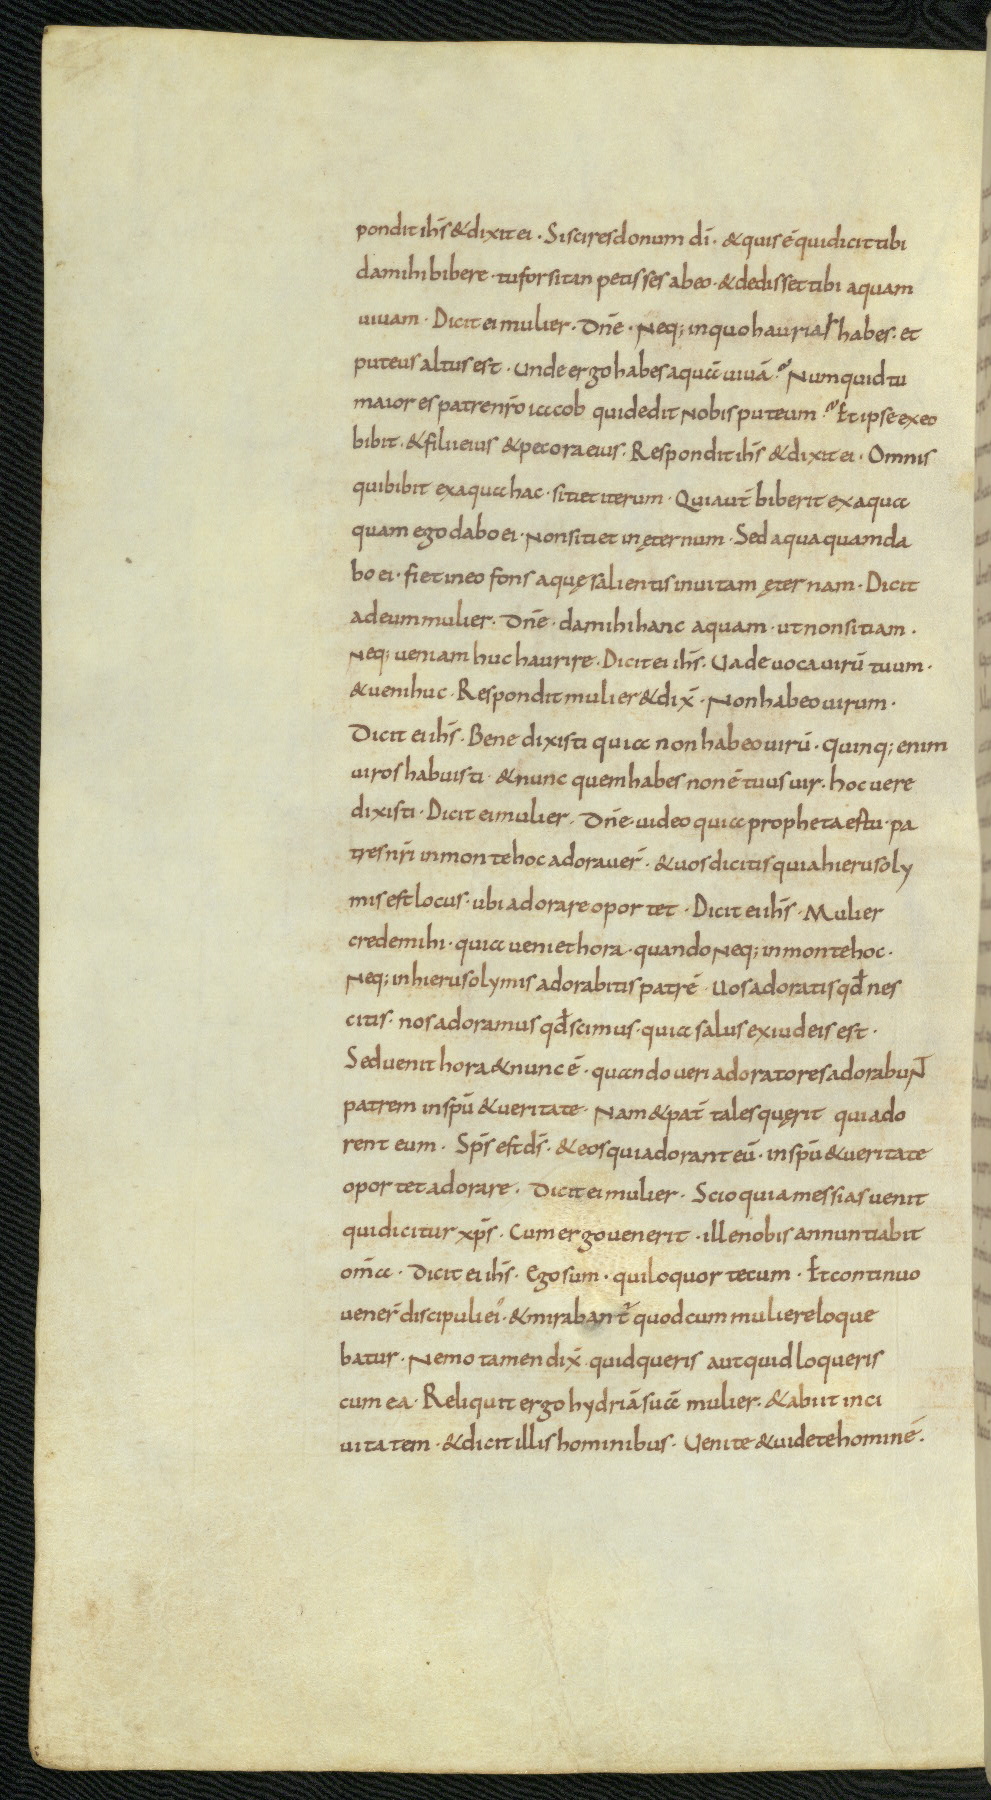 pondit ihs̄ & dixit ei · Si scires donum dī · & quis ē qui dicit tibi
da mihi bibere · tu forsitan petisses ab eo · & dedisset tibi aquam
uiuam · Dicit ei mulier · Dn̄e · Neq; in quo haurias habes · et
puteus altus est · Unde ergo habes aquā uiuā · Numquid tu
maior es patre nr̄o iacob qui dedit nobis puteum · Et ipse ex eo
bibit · & filii eius & pecora eius · Respondit ihs̄ & dixit ei · Omnis
qui bibit ex aqua hac · sitiet iterum · Qui aut̄ biberit ex aqua
quam ego dabo ei · Non sitiet in ęternum · Sed aqua quam da
bo ei · fiet in eo fons aquę salientis in uitam ęternam · Dicit
ad eum mulier · Dn̄e · da mihi hanc aquam · ut non sitiam ·
Neq; ueniam huc haurire · Dicit ei ihs̄ · Uade uoca uirū tuum ·
& ueni huc · Respondit mulier & dix̄ · Non habeo uirum ·
Dicit ei ihs̄ · Bene dixisti quia non habeo uirū · Quinq; enim
uiros habuisti · & nunc quem habes non ē tuus uir · hoc uere
dixisti · Dicit ei mulier · Dn̄e · uideo quia propheta es tu · pa
tres nr̄i in monte hoc adorauer̄ · & uos dicitis quia hierusoly
mis est locus · ubi adorare oportet · Dicit ei ihs̄ · Mulier
crede mihi · quia ueniet hora · quando Neq; in monte hoc ·
Neq; in hierusolymis adorabitis patrē · Uos adoratis qd̄ nes
citis · nos adoramus qd̄ scimus · quia salus ex iudeis est ·
Sed uenit hora & nunc ē · quando ueri adoratores adorabunt
patrem in spū & ueritate · Nam & pat̄ tales quęrit qui ado
rent eum · Sps̄ est ds̄ · & eos qui adorant eū · in spū & ueritate
oportet adorare · Dicit ei mulier · Scio quia messias uenit
qui dicitur xps̄ · Cum ergo uenerit · ille nobis annuntiabit
om̄a · Dicit ei ihs̄ · Ego sum · qui loquor tecum · Et continuo
uener̄ discipuli ei' · & mirabant̄ quod cum muliere loque
batur · Nemo tamen dix̄ · quid queris aut quid loqueris
cum ea · Reliquit ergo hydriā suā mulier · & abiit in ci
uitatem · & dicit illis hominibus · Uenite & uidete hominē ·